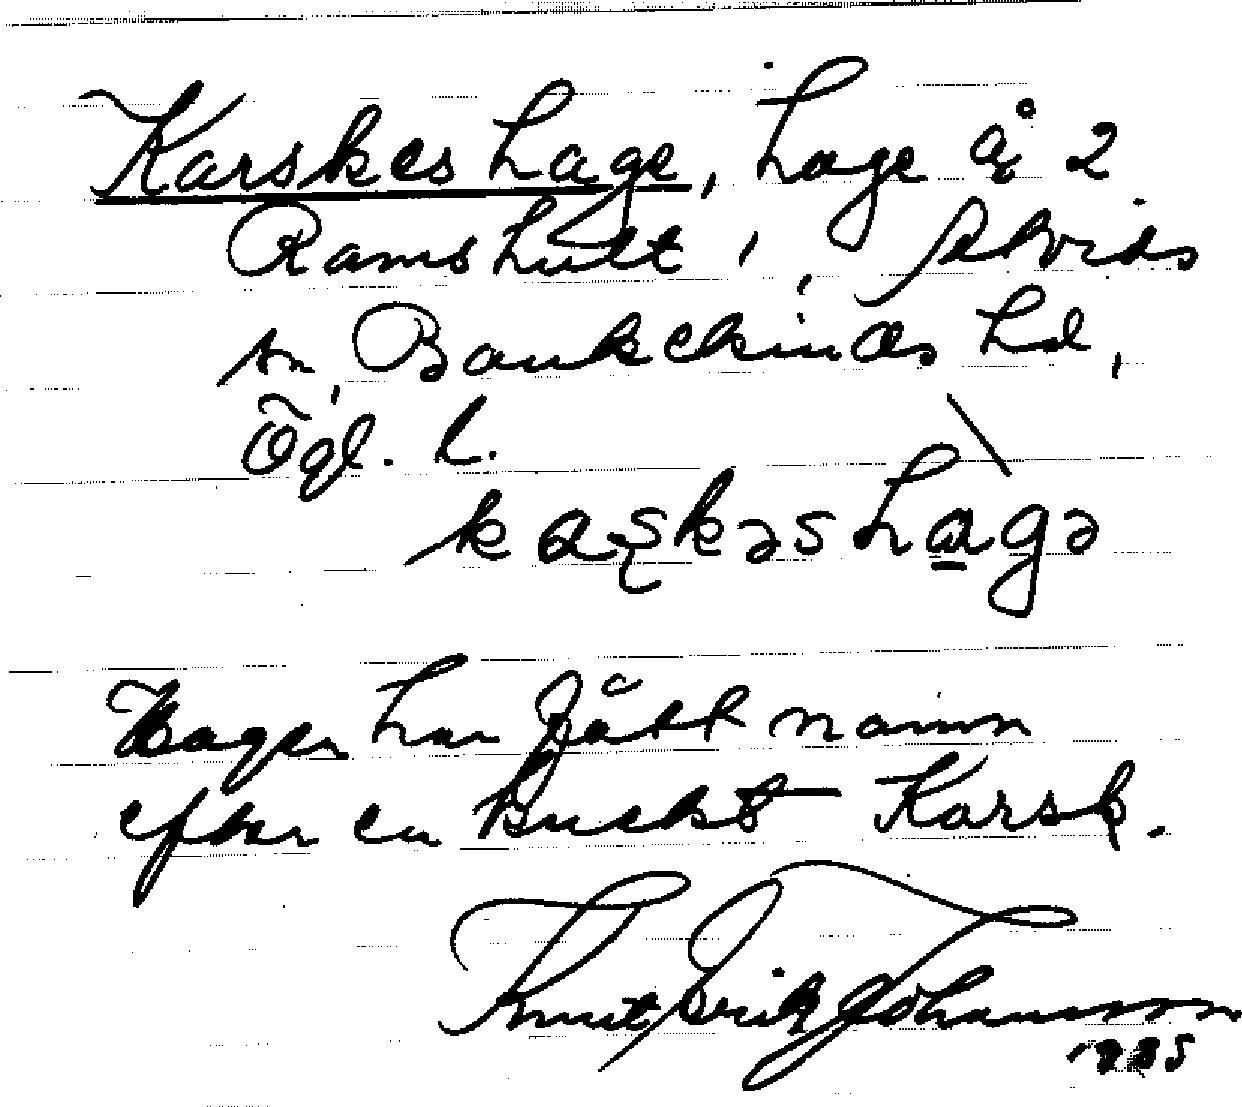 Karskes hage, hage å 2
Ramshult, Skrids
sn, Bankekinds hd,
Ögl. l.
kaʂkəshagə
Hagen har fått namn
efter en buske Karsk.
Knut Erik Johansson
1935